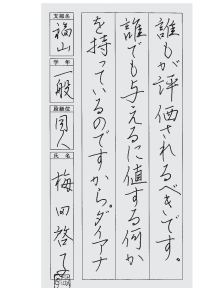 誰もが評価されるべきです。
誰でも与えるに値する何か
を持っているのですから。ダイアナ
支部名
福山
学年
一般
段級位
同人
氏名
梅田啓